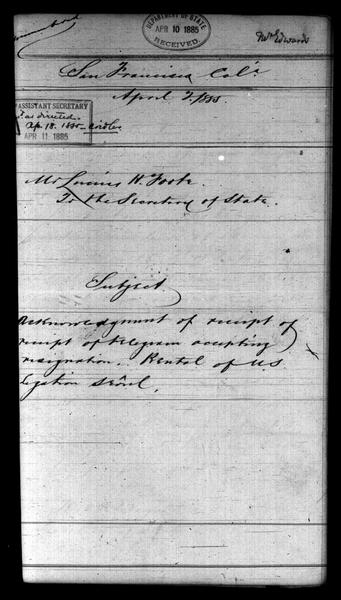 DEPARTMENT OF STATE
APR 10 1885
RECEIVED.
Mr Edwards
San Francisco Cal'a
April 2/85.
ASSISTANT SECRETARY
as directed.
Ap. 18. 1885
APR 11 1885
Mr Lucius H. Foote.
To the Secretary of State.
Subject
Acknowledgment of receipt of
receipt of telegram accepting
resignation. Rental of U.S.
legation Seoul.